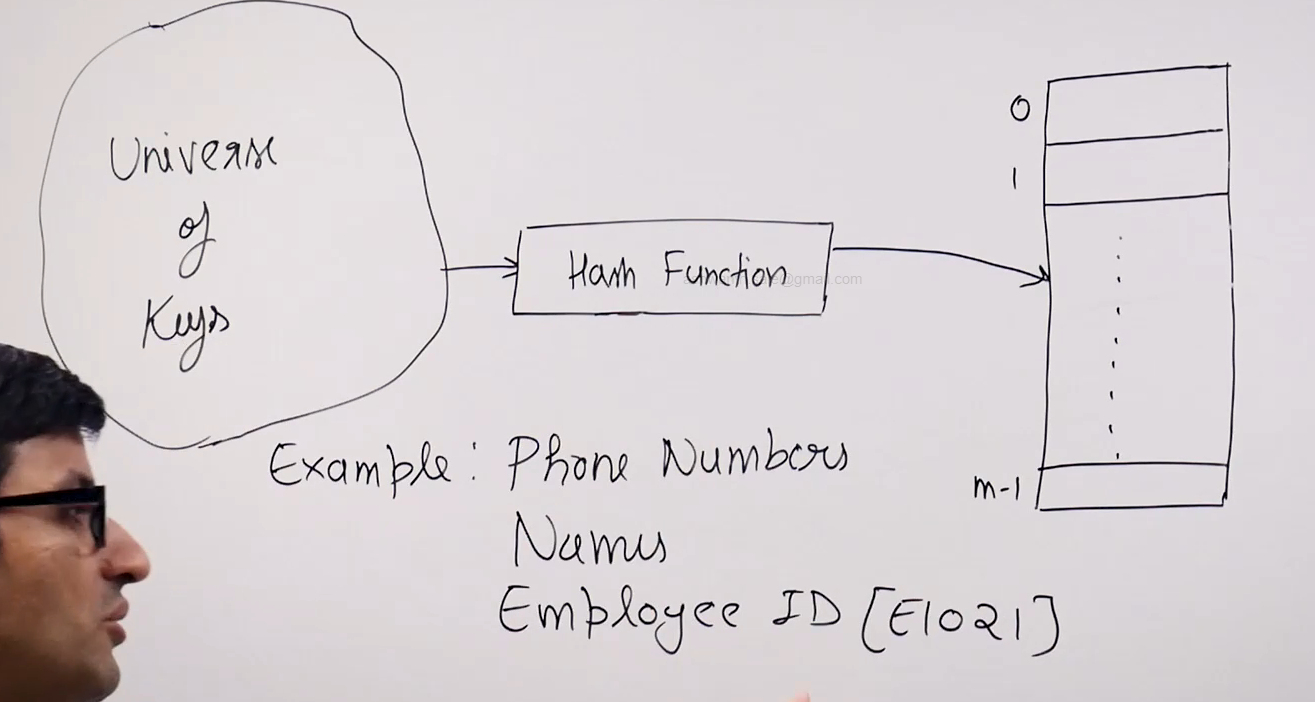 Universe
of
Keys
Hash Function
0
1
m-1
Example: Phone Numbers
Names
Employee ID [E1021]